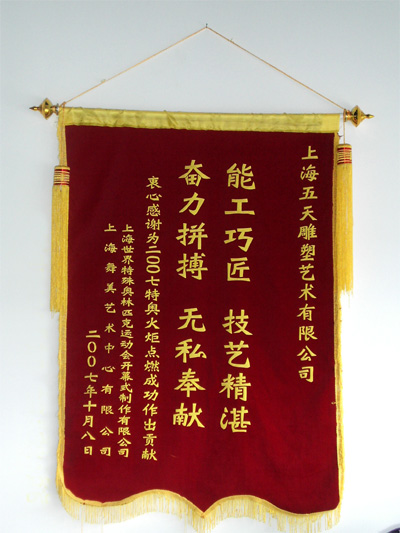 上海五天雕塑艺术有限公司
能工巧匠 技艺精湛
奋力拼搏 无私奉献
衷心感谢为二00七特奥火炬点燃成功作出贡献
上海世界特殊奥林匹克运动会开幕式制作有限公司
上海舜美艺术中心有限公司
二00七年十月八日